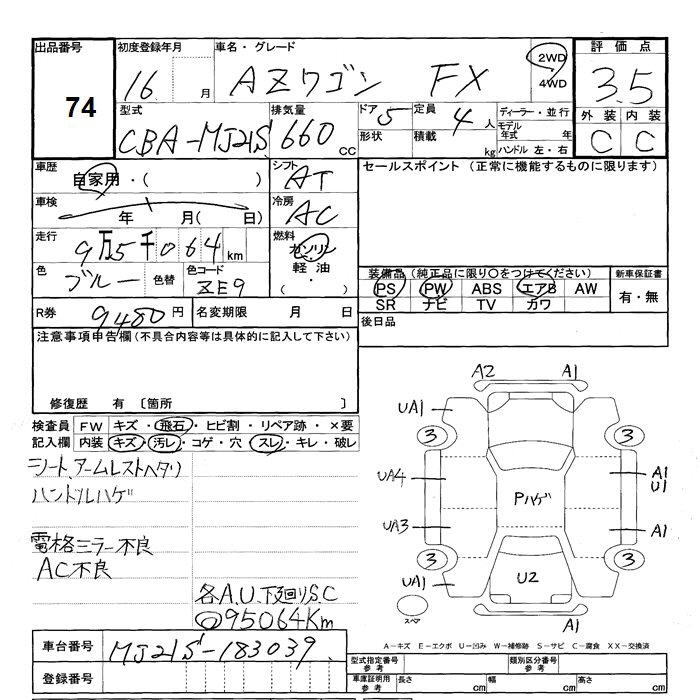 出品番号 初度登録年月 車名・グレード 評価点
74 16 月 AZワゴン FX 2WD 4WD 3.5
型式 排気量 ドア 5 定員 4人 ディーラー・並行 外装 内装
CBA-MJ21S 660 CC 形状 積載 kg モデル年式 年 C C
ハンドル 左・右
車歴 シフト セールスポイント (正常に機能するものに限ります)
自家用・( ) AT
車検 冷房
年 月( 日) AC
走行 燃料
9万5千064km ガソリン
色 色替 色コード 軽油 装備品(純正品に限り○をつけてください) 新車保証書
ブルー ZE9 (・) PS PW ABS エアB AW 有・無
SR ナビ TV カワ
R券 9480円 名変期限 月 日 後日品
注意事項申告欄(不具合内容等は具体的に記入して下さい)
修復歴 有 〔箇所 〕
検査員 FW キズ・飛石・ヒビ割・リペア跡・×要
記入欄 内装 キズ・汚レ・コゲ・穴・スレ・キレ・破レ
シート、アームレストヘタリ
ハンドルハゲ
電格ミラー不良
AC不良
各A.U.下廻りS.C
95064Km
A2 A1
UA1
3 3
UA4 Pハゲ A1
U1
UA3 A1
3 3
UA1 U2
スペア A1
A-キズ E-エクボ U-凹み W-補修跡 S-サビ C-腐食 XX-交換済
車台番号 MJ21S-183039
登録番号
型式指定番号 参考 類別区分番号 参考
車庫証明用 参考 長さ cm 幅 cm 高さ cm